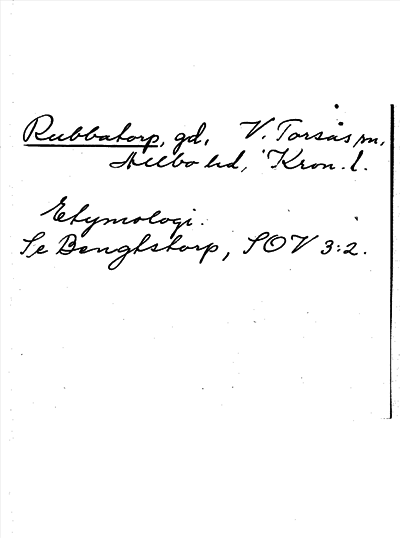 Rubbatorp, gd, V. Torsås sn,
Allbo hd, Kron. l.
Etymologi.
Se Bengtstorp, SOV 3:2.